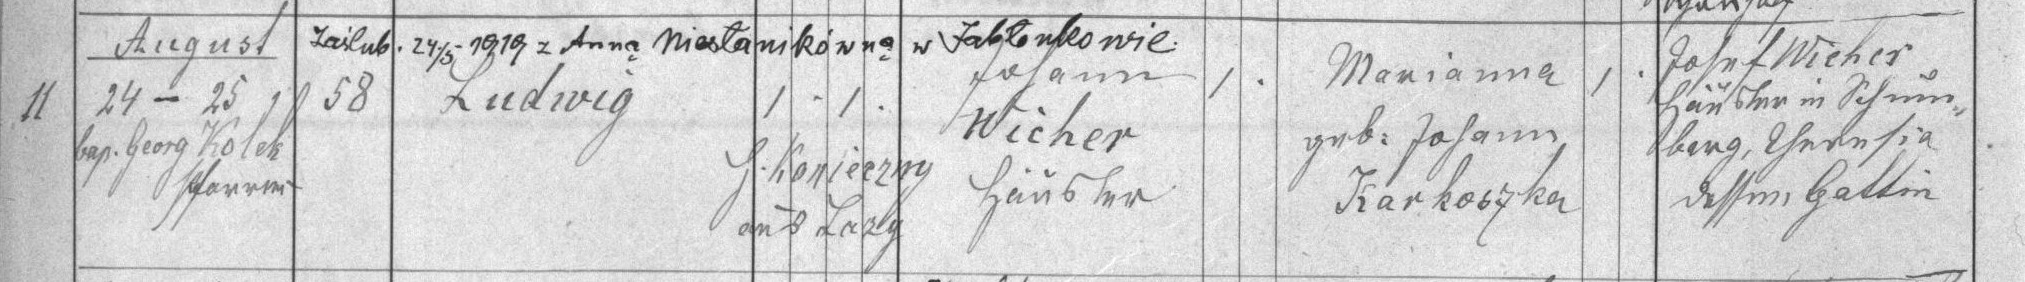 August
Zaślub. 24/5 1919 z Anną Niesłanikówną w Jabłonkowie.
11
24 – 25
58
Ludwig
1 . 1 .
Johann
1 .
Marianna
1 .
Josef Wicher
bap. Georg Kolek
Pfarrer
H. Konieczny
aus Lazy
Wicher
Häusler
geb: Johann
Karkoszka
Häusler in Schum„
barg, Theresia
dessen Gattin